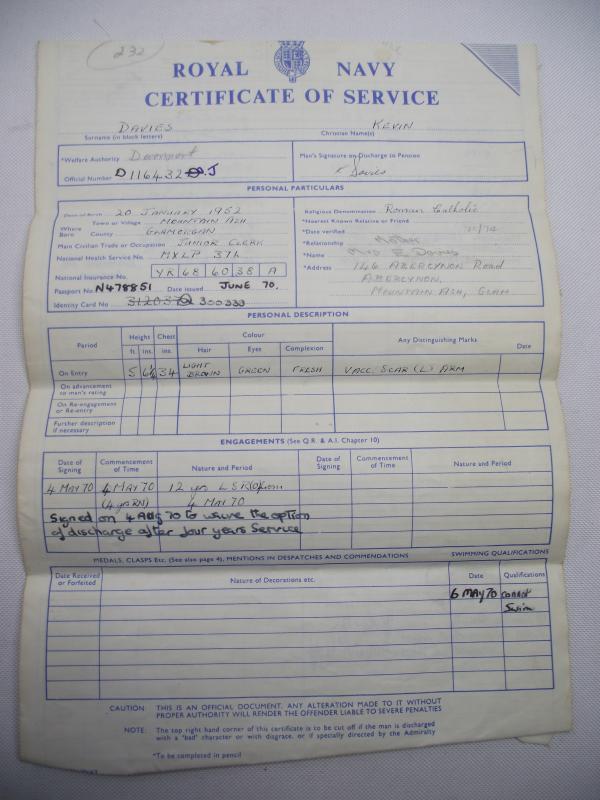 232
ROYAL NAVY
CERTIFICATE OF SERVICE
DAVIES KEVIN
Surname (in block letters) Christian Name(s)
*Welfare Authority Devonport
Man's Signature on Discharge to Pension
Official Number D116432 J
K Davies
PERSONAL PARTICULARS
Date of Birth 20 JANUARY 1952
Where Born Town or Village MOUNTAIN ASH
County GLAMORGAN
Main Civilian Trade or Occupation JUNIOR CLERK
National Health Service No. MXLP 371
National Insurance No. YR 68 60 38 A
Passport No. N478851 Date issued JUNE 70.
Identity Card No 300333
Religious Denomination Roman Catholic
*Nearest Known Relative or Friend
*Date verified
*Relationship Mother
*Name Mrs E. Davies
*Address 146 ABERCYNON Road
ABERCYNON,
MOUNTAIN ASH, GLAM
PERSONAL DESCRIPTION
Period Height Chest Colour Any Distinguishing Marks Date
ft. ins. ins. Hair Eyes Complexion
On Entry 5 6½ 34 LIGHT BROWN GREEN FRESH VACC. SCAR (L) ARM
On advancement to man's rating
On Re-engagement or Re-entry
Further description if necessary
ENGAGEMENTS (See Q.R. & A.I. Chapter 10)
Date of Signing Commencement of Time Nature and Period Date of Signing Commencement of Time Nature and Period
4 MAY 70 4 MAY 70 12 yrs
(4 yrs RN) 4 MAY 70
Signed on 4 Aug 70 to waive the option
of discharge after four years Service
MEDALS, CLASPS Etc. (See also page 4), MENTIONS IN DESPATCHES AND COMMENDATIONS SWIMMING QUALIFICATIONS
Date Received or Forfeited Nature of Decorations etc. Date Qualifications
6 MAY 70 cannot
Swim
CAUTION THIS IS AN OFFICIAL DOCUMENT. ANY ALTERATION MADE TO IT WITHOUT
PROPER AUTHORITY WILL RENDER THE OFFENDER LIABLE TO SEVERE PENALTIES
NOTE: The top right hand corner of this certificate is to be cut off if the man is discharged
with a 'bad' character or with disgrace, or if specially directed by the Admiralty
*To be completed in pencil